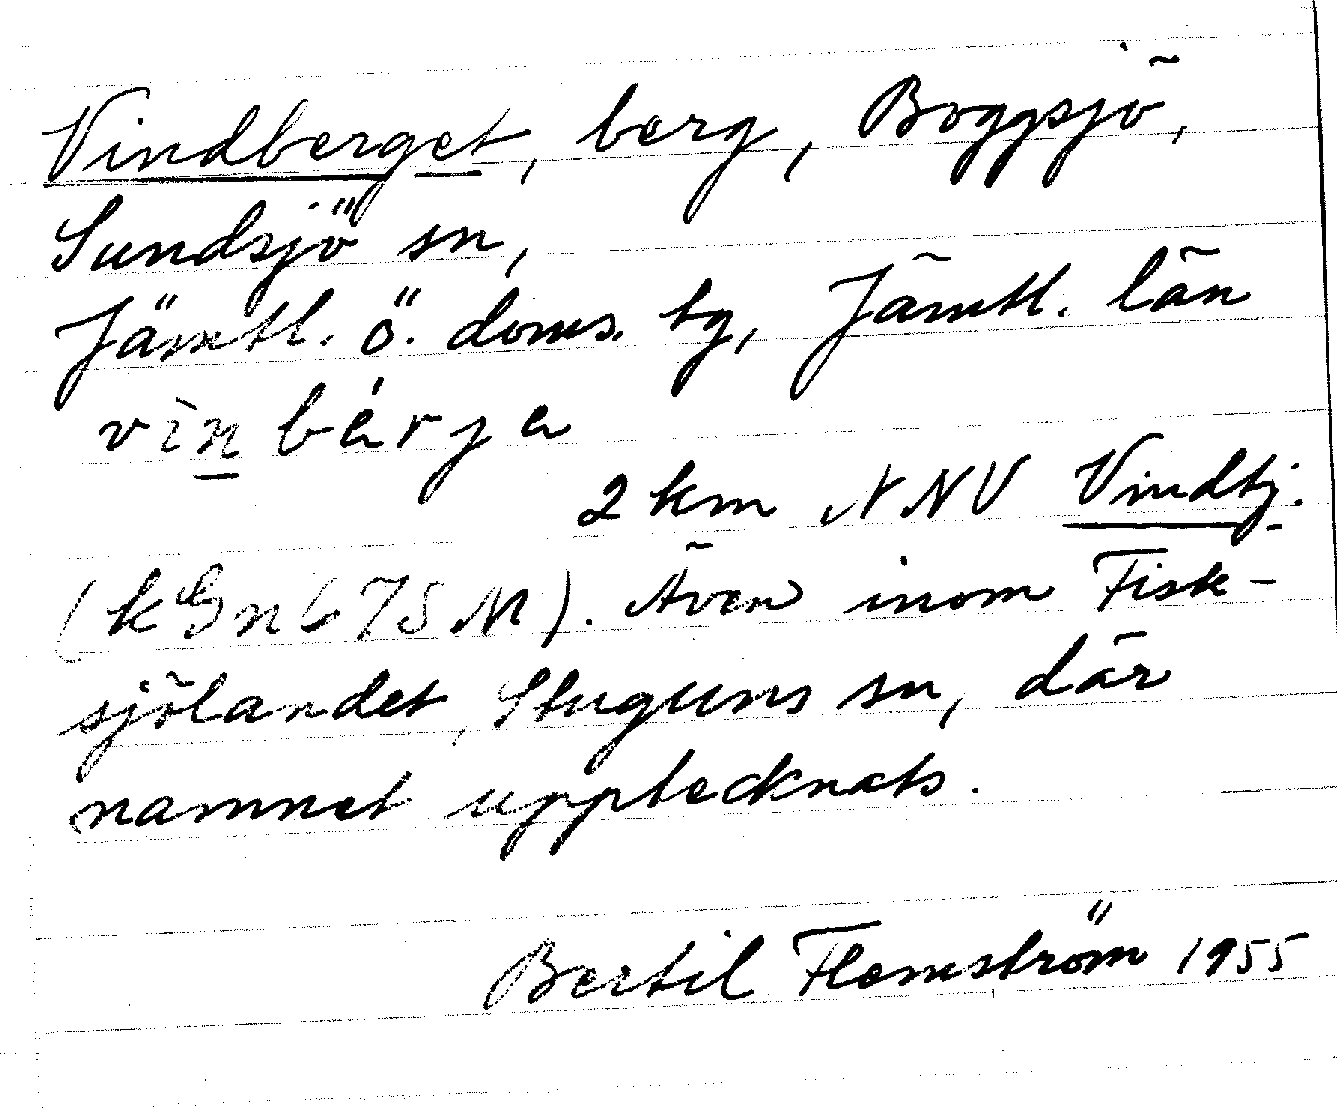 Vindberget, berg, Boggsjö,
Sundsjö sn,
Jämtl. ö. doms. tg, Jämtl. län
vìnbærja
2 km NNV Vindtj.
(k Gn 67 S M). Även inom Fisk-
sjölandet, Stuguns sn, där
namnet upptecknats.
Bertil Flemström 1955